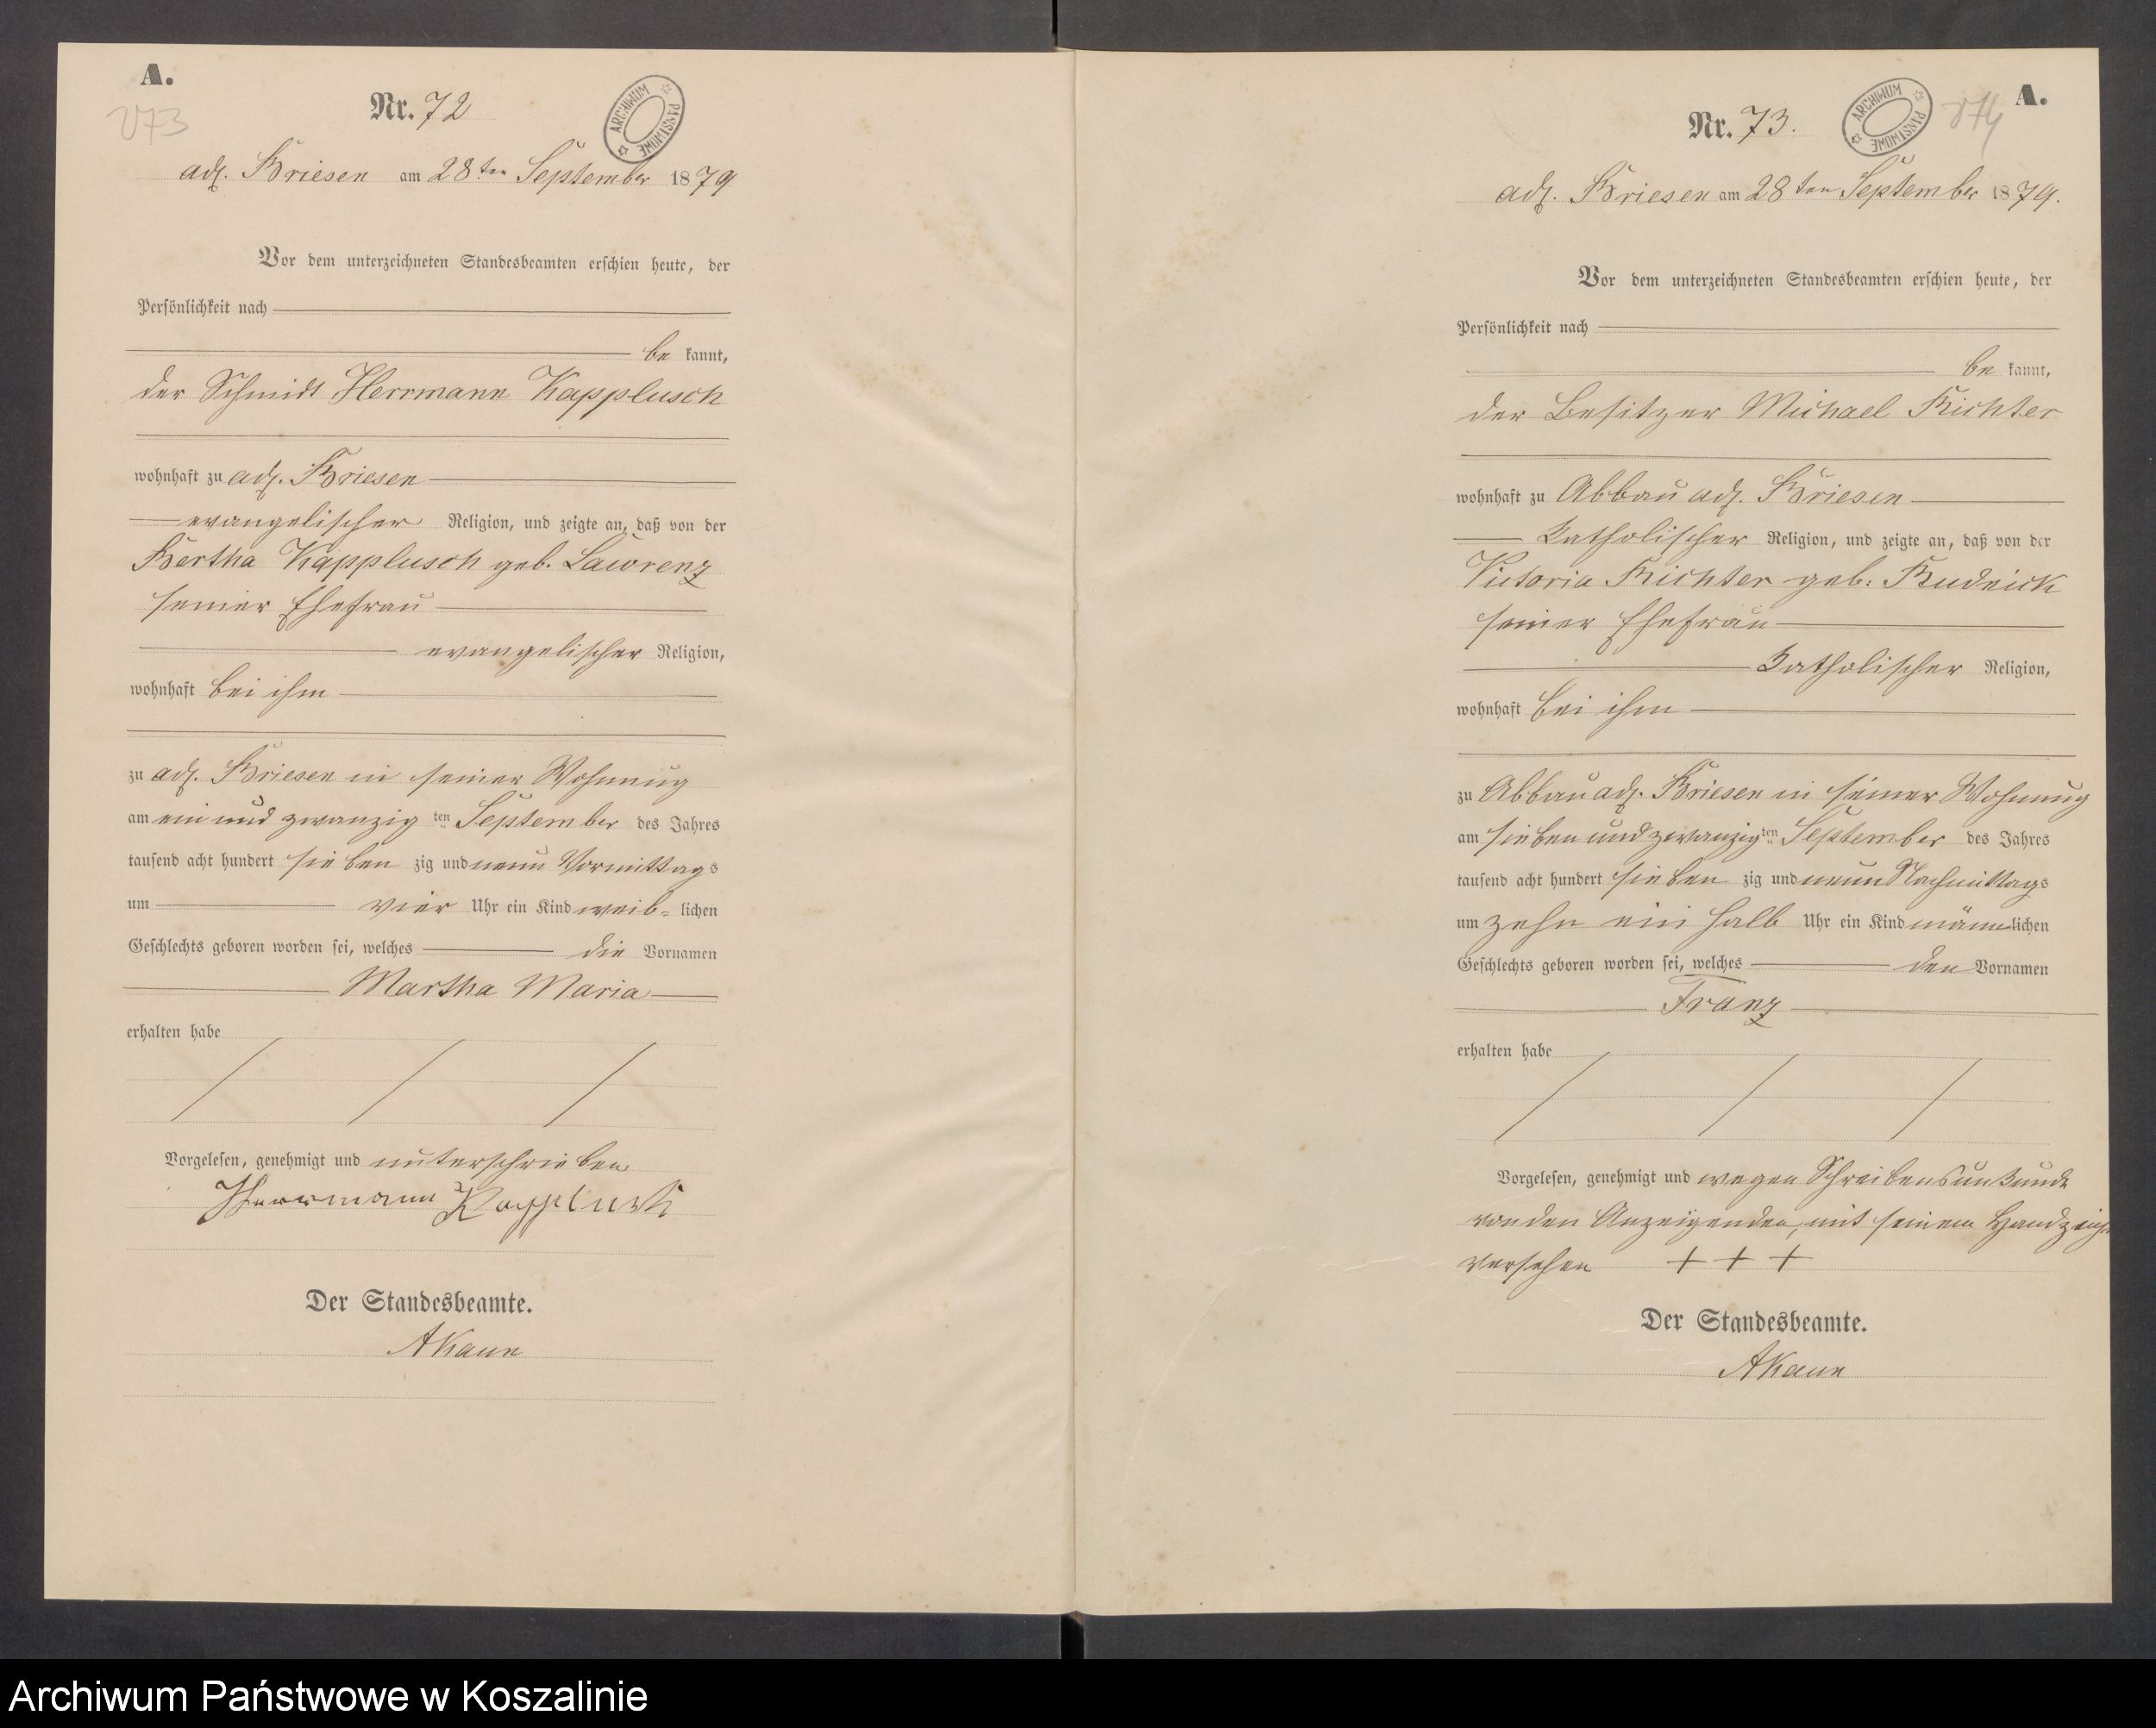 A.
Nr. 72
ARCHIWUM PAŃSTWOWE
adl. Briesen am 28ten September 1879
Vor dem unterzeichneten Standesbeamten erschien heute, der
Persönlichkeit nach
be kannt,
der Schmidt Herrmann Kapplusch
wohnhaft zu adl. Briesen
evangelischer Religion, und zeigte an, daß von der
Bertha Kapplusch geb. Lawrenz
seiner Ehefrau
evangelischer Religion,
wohnhaft bei ihm
zu adl. Briesen in seiner Wohnung
am ein und zwanzig ten September des Jahres
tausend acht hundert sieben zig und neun Vormittags
um vier Uhr ein Kind weib= lichen
Geschlechts geboren worden sei, welches die Vornamen
Martha Maria
erhalten habe
Vorgelesen, genehmigt und unterschrieben
Herrmann Kapplusch
Der Standesbeamte.
AKaun
A.
Nr. 73.
174
ARCHIWUM PAŃSTWOWE
adl. Briesen am 28ten September 1879.
Vor dem unterzeichneten Standesbeamten erschien heute, der
Persönlichkeit nach
be kannt,
der Besitzer Michael Richter
wohnhaft zu Abbau adl. Briesen
Katholischer Religion, und zeigte an, daß von der
Victoria Richter geb: Rudnick
seiner Ehefrau
Katholischer Religion,
wohnhaft bei ihm
zu Abbau adl. Briesen in seiner Wohnung
am sieben und zwanzig ten September des Jahres
tausend acht hundert sieben zig und neun Nachmittags
um zehn ein halb Uhr ein Kind männlichen
Geschlechts geboren worden sei, welches den Vornamen
Franz
erhalten habe
Vorgelesen, genehmigt und wegen Schreibensunkunde
von den Anzeigenden, mit seinem Handzeichen
versehen + + +
Der Standesbeamte.
AKaun
Archiwum Państwowe w Koszalinie